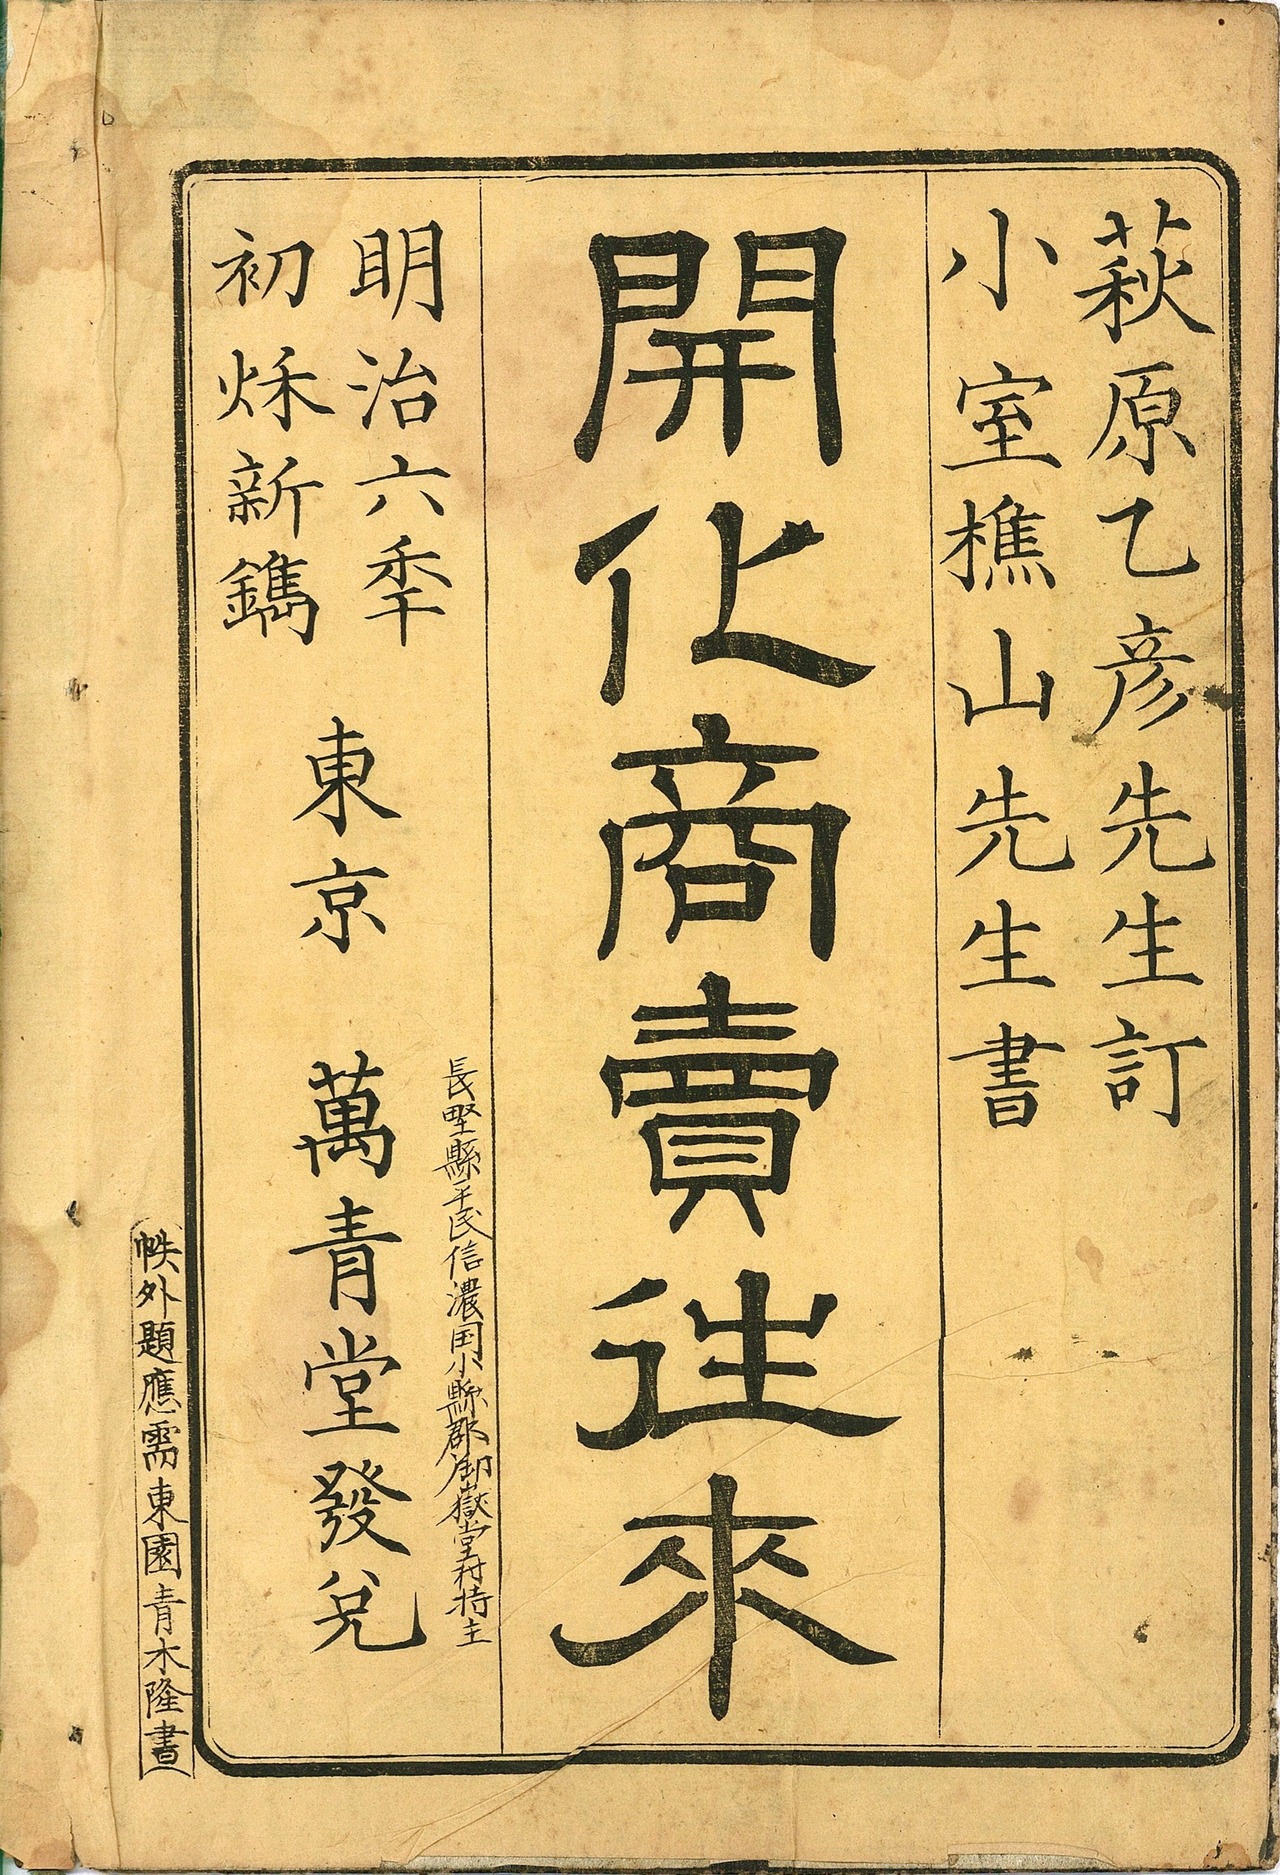 萩原乙彦先生訂
小室樵山先生書
開化商賣往來
明治六季
初秌新鐫
東京　萬青堂發兌
長野縣平民信濃国小縣郡御嶽堂村持主
帙外題應需東園青木隆書